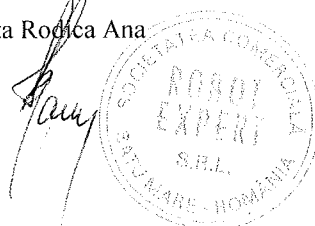 ta Rodica Ana
SOCIETATEA COMERCIALA
ROBOT
EXPERT
S.R.L.
SATU MARE - ROMANIA